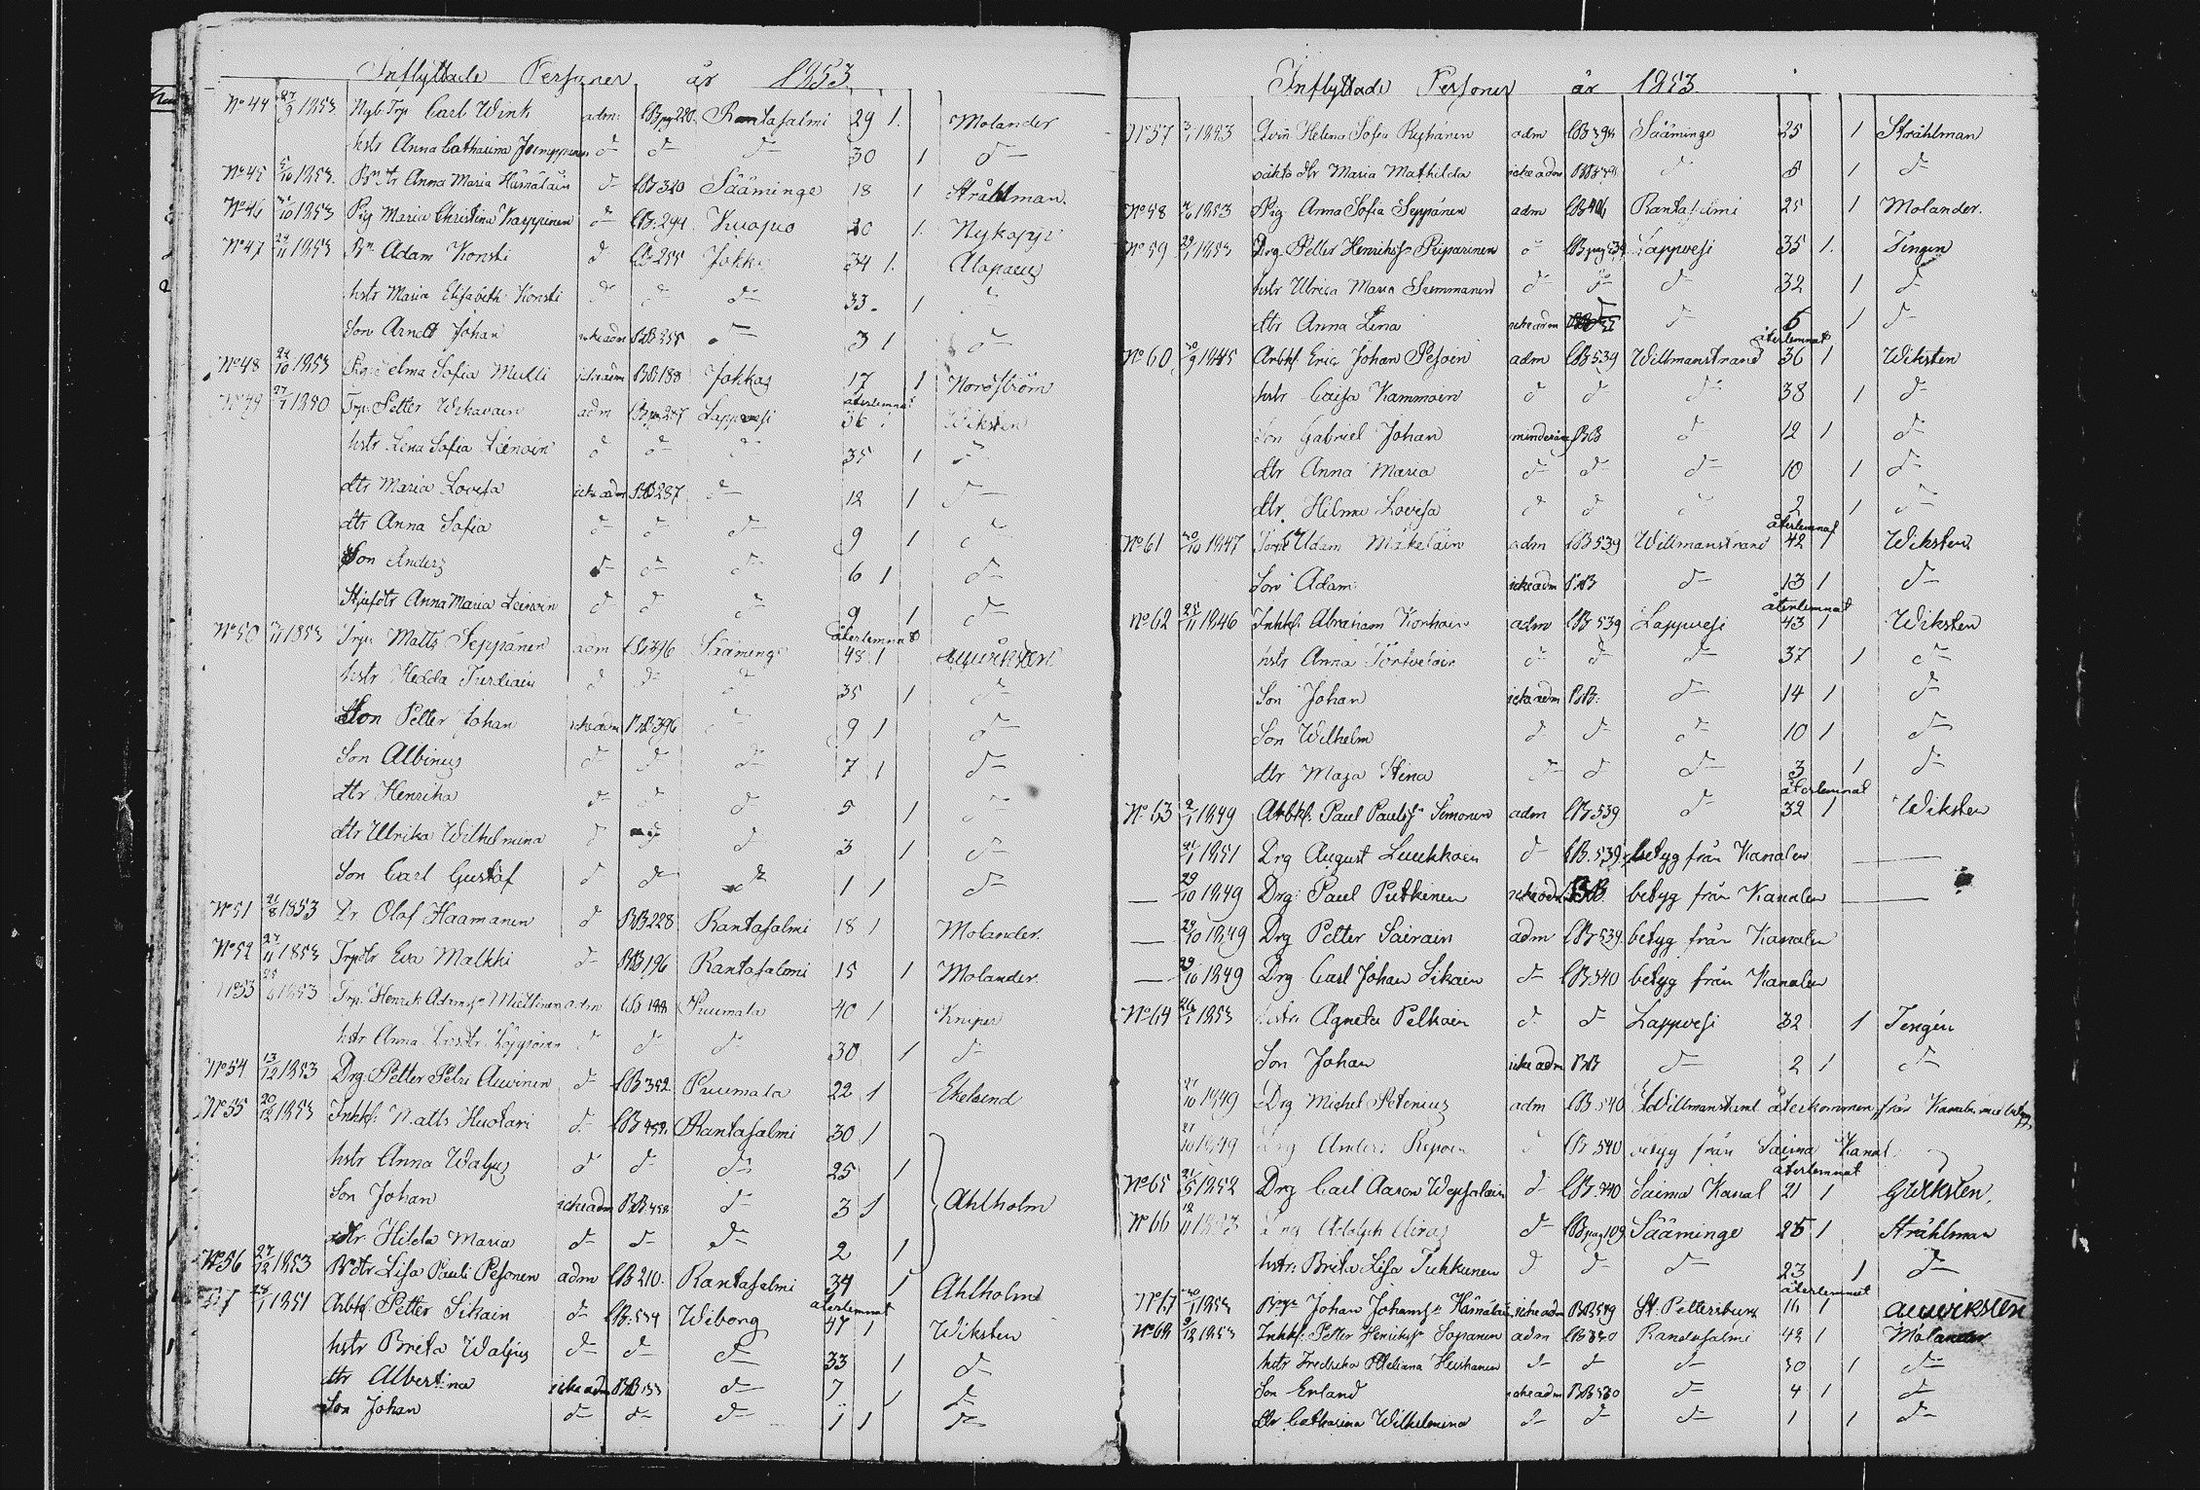 Inflyttade Personer år 1853.
No 44 27/9 1853. Nyb. Trp Carl Wink adm: CB pg 220. Rantasalmi 29 1. Molander
hstr Anna Catharina d- d- d- 30 1 d-
No 45 5/10 1853. Bn dtr Anna Maria Hämäläin d- CB 320 Sääminge 18 1 Stråhlman.
No 46 1853 Pig Maria Christina Kappinen d- CB. 294 Kuopio 20 1. Nykopp
No 47 29/11 1853 Bn Adam Konsti d CB 255 Jokkas 34 1. Alopaeus
hstr Maria Elisabeth Konsti d- d- d- 33. 1
Son Arndt Johan icke adm BB 255 d- 3 1 d-
No 48 22/10 1853 Pig Selma Sofia Mulli icke adm BB 188 Jokkas 17 1 Nordström
No 49 27/1 1850 Trp. Petter Wehavain adm CB pg 287 Lappvesi återlemnat 36 1 Wiksten
hstr Lena Sofia Leinoin d d- d- 35 1 d-
dtr Maria Lovisa icke adm BB 287 d- 12 1 d-
dtr Anna Sofia d- d- d- 9 1 d-
Son Anders d- d- d- 6 1 d-
Stjufdtr Anna Maria Leinoin d d d- 9 1 d-
No 50 1853 Trp. Matts Seppänen adm CB 396 Sääminge återlemnat 48 1 Auwiksten
hstr Hedda Turtiain d d- d 35 1 d-
Son Petter Johan icke adm BB 396 d- 9 1 d-
Son Albinus d- d- d- 7 1 d-
dtr Henrika d- d d 5 1 d-
dtr Ulrika Wilhelmina d d 3 1 d-
Son Carl Gustaf d d- d- 1 1 d-
No 51 21/8 1853 Dr Olof Haamanen d BB 228 Rantasalmi 18 1 Molander.
No 52 27/11 1853 Trpdtr Eva Malkki d- BB 196 Rantasalmi 15 1 Molander.
No 53 1853 Trp. Henrik Adamsn Miettinen adm CB 188 Puumala 40 1 Kniper
hstr Anna d d d- 30 1 d-
No 54 13/12 1853 Drg. Petter Auvinen d- CB 352 Puumala 22 1 Ekelund
No 55 20/12 1853 Inhk: Matts Huotari d- CB 452. Rantasalmi 30 1
hstr Anna Waljus d d- d- 25 1
Son Johan icke adm BB. 452 d- 3 1 Ahlholm
dtr Hilda Maria d- d- d- 2 1
No 56 27/12 1853 Bndtr Lisa Pauli Pesonen adm CB 210. Rantasalmi 34 1 Ahlholm
1851 Arbk. Petter Sikain d- CB. 534 Wiborg återlemnat 47 1 Wiksten
hstr Brita Waljus d- d- d- 33 1 d
dtr Albertina icke adm BB d- 7 1 d
Son Johan d- d- d- 1 1 d-
Inflyttade Personer år 1853.
No 57 1853 Helena Sofia adm CB 394 Sääminge 25 1 Stråhlman
oäkta dtr Maria Mathilda icke adm d 8 1 d-
No 58 1853 Pig Anna Sofia Seppänen adm CB 406 Rantasalmi 25 1 Molander.
No 59 29/1 1853 Drg. Petter Henrikss: Piiparinen d- CB pag 534 Lappvesi 35 1. Tengen
hstr Ulrica Maria Summanen d- d- d- 32 1 d-
dtr Anna Lena icke adm d- 6 1 d-
No 60 30/9 1845 Arbk. Eric Johan Pesoin adm CB 539 Willmanstrand återlemnat 36 1 Wiksten
hstr Caisa Kammoin d d d- 38 1 d-
Son Gabriel Johan minderårig BB d 12 1 d-
dtr Anna Maria d- d- d- 10 1 d-
dtr. Hilma Lovisa d d d 2 1 d-
No 61 20/10 1847 Adam Mäkeläin adm CB 539 Willmanstrand återlemnat 42 1 Wiksten
Son Adam icke adm BB d- 13 1 d-
No 62 25/11 1846 Inhk. Abraham Korhoin adm CB 539 Lappvesi återlemnat 43 1 Wiksten
hstr Anna d- d d- 37 1 d-
Son Johan icke adm BB. d- 14 1 d
Son Wilhelm d d- d- 10 1 d-
dtr Maja Stina d- d d- 3 1 d-
No 63 2/1 1849 Arbk: Paul Paulss: Simonen adm CB 539 d- återlemnat 32 1 Wiksten
21/1 1851 Drg August Luukkoin d CB. 539 betyg från Kanalen
29/10 1849 Drg: Paul Putkinen icke adm BB. betyg från Kanalen
29/10 1849 Drg Petter Sairain adm CB 539. betyg från Kanalen
29/10 1849 Drg Carl Johan Sikain d- CB. 540 betyg från Kanalen
No 64 1853 hstr. Agneta Pelkoin d. d- Lappvesi 32 1 Tengén
Son Johan icke adm BB d- 2 1 d-
27/10 1849 Drg Michel adm CB. 540 Willmanstrand återkommen från Kanalen med betyg
27/10 1849 Drg Anders d CB 540 betyg från Saima Kanal
No 65 21/5 1852 Drg Carl Aaron Wepsäläin d- CB. 540 Saima Kanal återlemnat 21 1 GWiksten.
No 66 12/11 1853 Drg Adolph d- CB pag 109. Sääminge 25 1 Stråhlman
hstr. Brita Lisa Tuhkunen d d- d- 23 1 d-
No 67 1853 Johan Johanss: Hämäläin icke adm BB 549 St. Pettersburg återlemnat 16 1 Auwiksten
No 68 9/12 1853 Inhk. Petter Henrikss: Sopanen adm CB 530 Randasalmi 42 1 Molander
hstr Fredrika Heiskanen d- d d- 30 1 d-
Son Erland icke adm BB 530 d- 4 1 d-
dtr Catharina Wilhelmina d- d- d- 1 1 d-